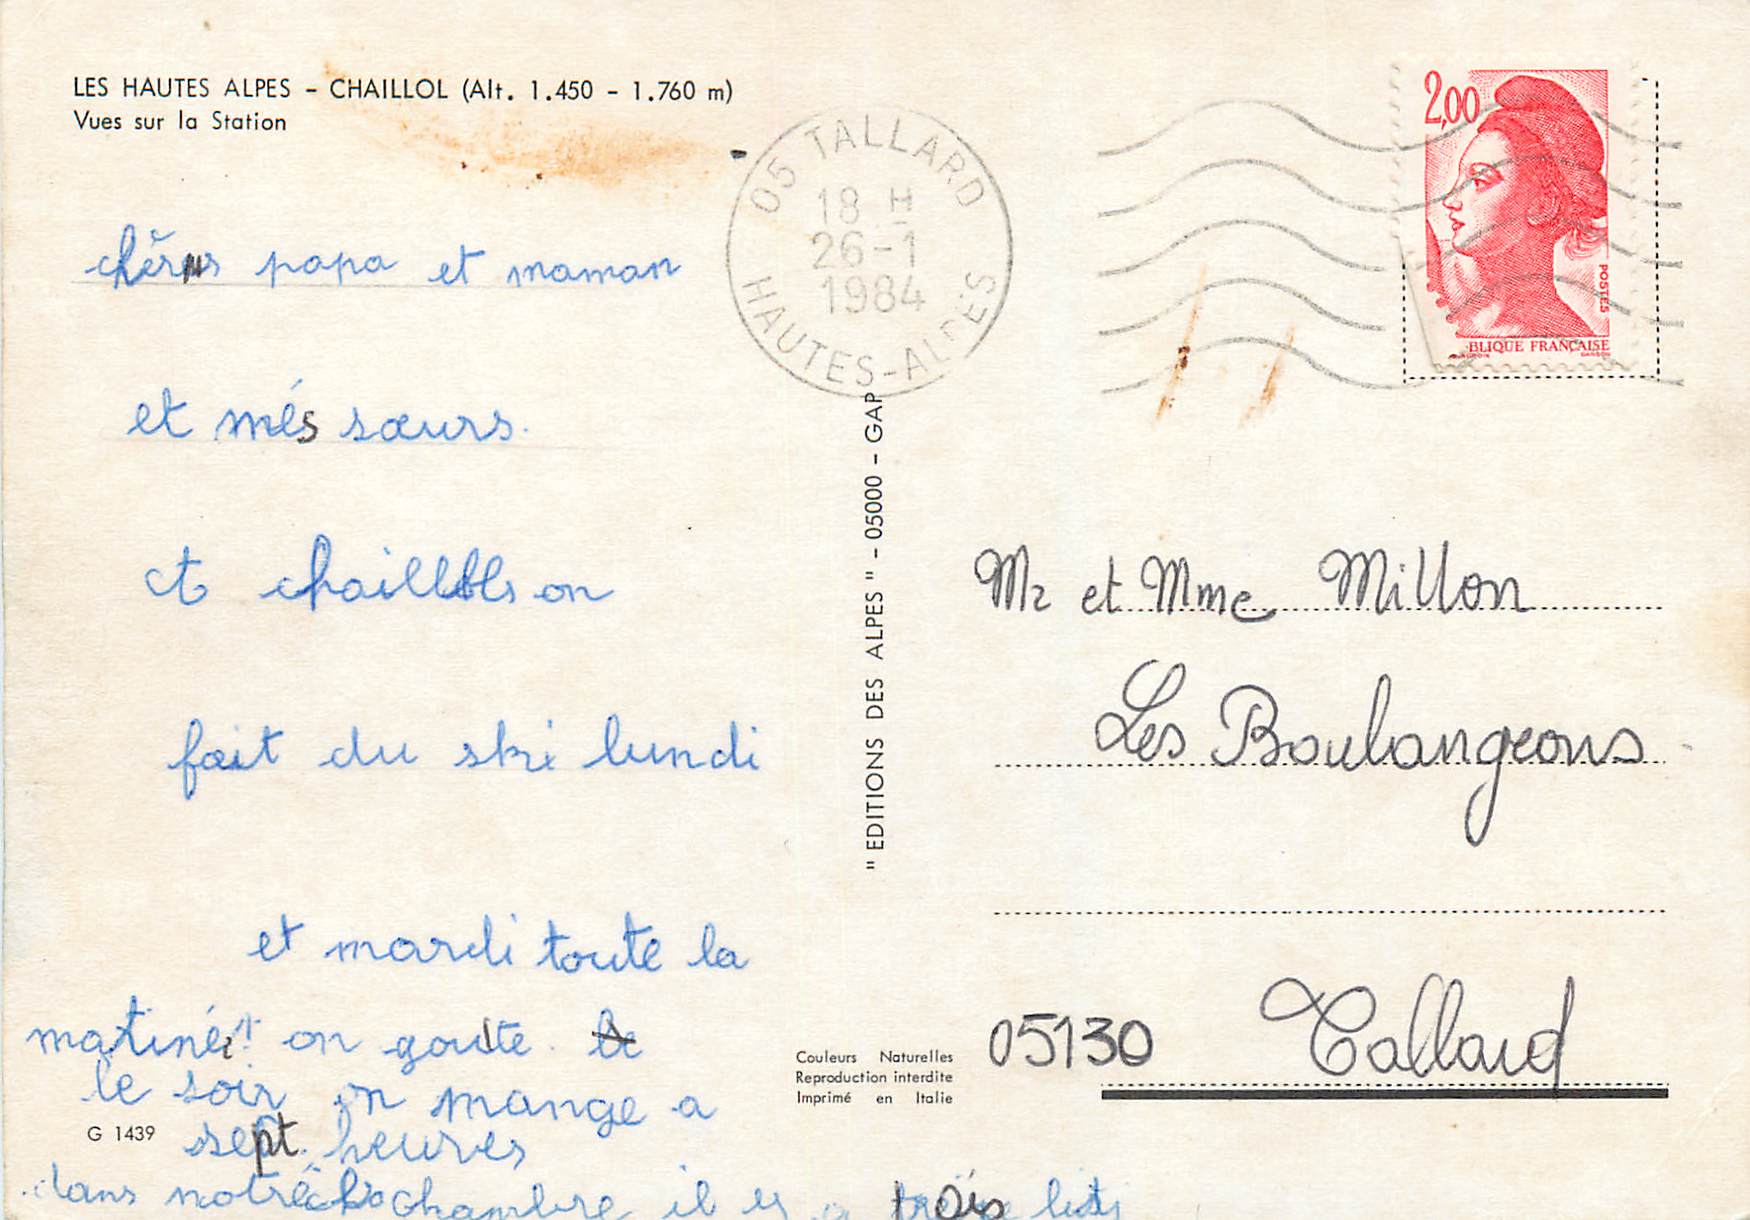 LES HAUTES ALPES - CHAILLOL (Alt. 1.450 - 1.760 m)
Vues sur la Station
05 TALLARD
18 H
26-1
1984
HAUTES-ALPES
2,00
POSTES
BLIQUE FRANÇAISE
GANDON
chèrs papa et maman
et més sœurs.
et chaillol on
fait du ski lundi
et mardi toute la
matiné on goute.
le soir on mange a
sept heures
dans notre chambre il y a trois lits
"EDITIONS DES ALPES" - 05000 - GAP
Mr et Mme Millon
Les Boulangeons
05130 Tallard
Couleurs Naturelles
Reproduction interdite
Imprimé en Italie
G 1439